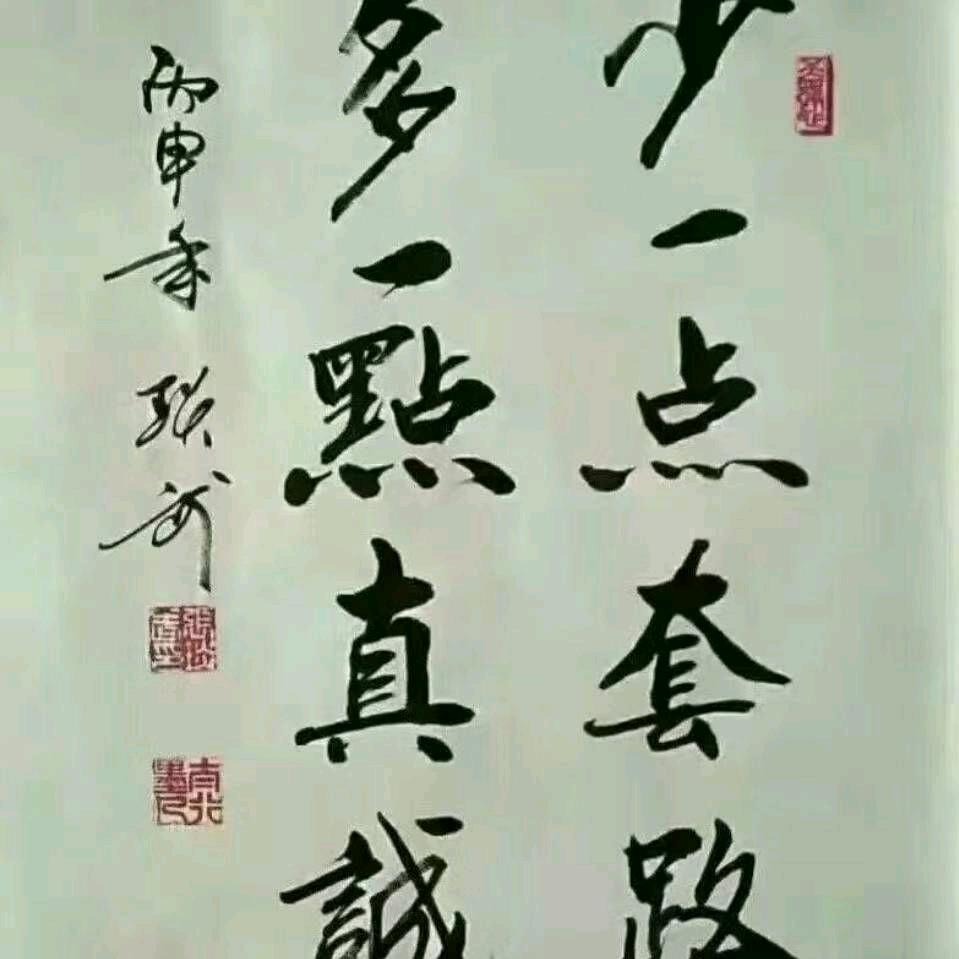 少一点套路
多一點真誠
丙申年